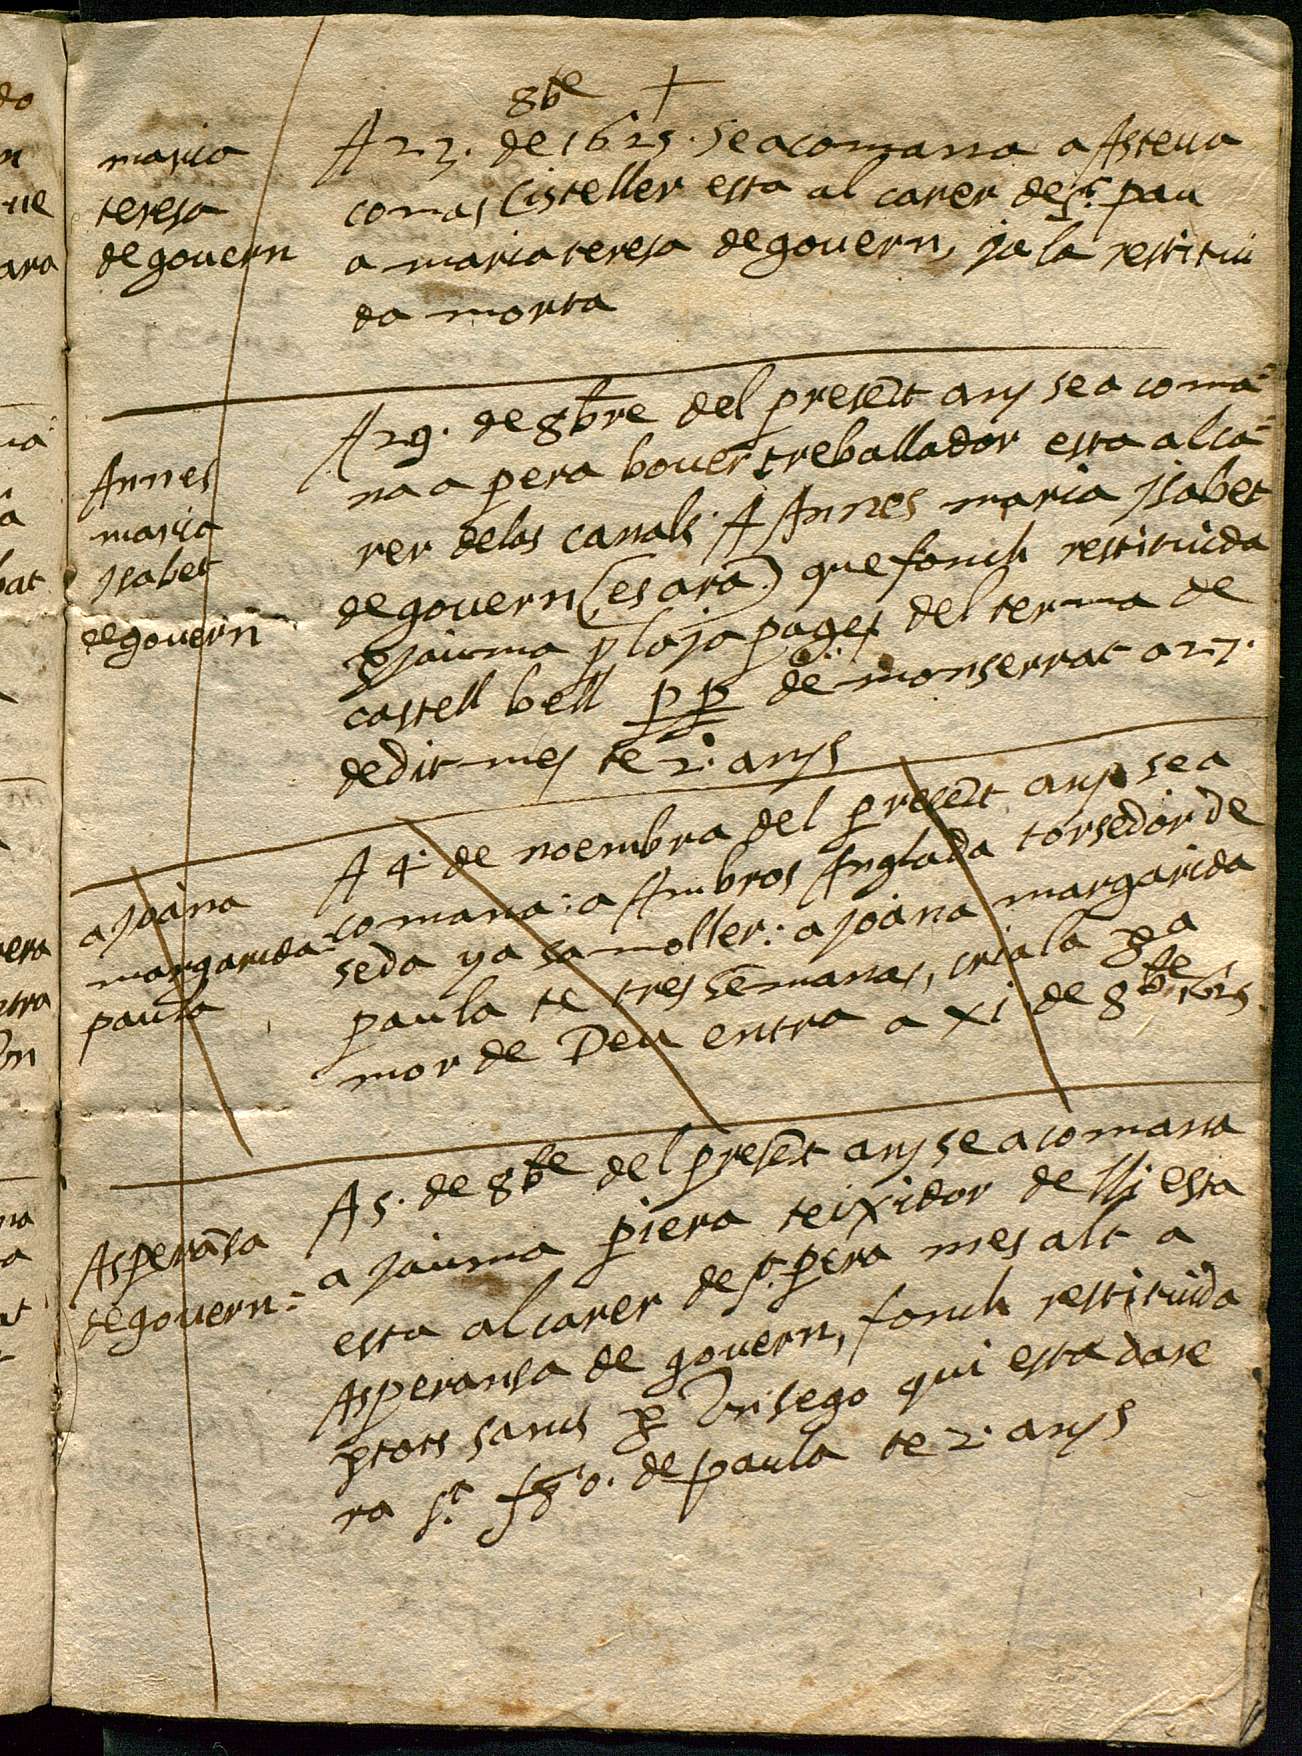 8bre +
maria
teresa
de govern
A 23. de 1625. se acomana a Asteva
comas Cisteller esta al carer de St. pau
a maria teresa de govern, ja la restitui
da morta
Annes
maria
Isabet
de govern
A 29. de 8bre del presēt any se a coma=
na a pera bover treballador esta al ca=
rer delas canals. A Annes maria Isabet
de govern (es ara) que fonch restituida
p jauma playa pages del terma de
castell bell pp de monserrat a 27.
de dit mes te 2. anys
a Joana
margarida=
paula
A 4. de noembra del presēt any se a
comana: a Ambros Anglada torsedor de
seda y a sa moller: a joana margarida
paula te tres semanas, criala p a
mor de Deu entra a xi de 8bre 1625
Asperāsa
de govern=
A 5. de 8bre del presēt any se acomana
a jauma piera teixidor de lli esta
esta al carer de St. pera mes alt a
Asperansa de govern, fonch restituida
p tots sancts p Un sego qui esta dare
ra St. fro. de paula te 2. anys